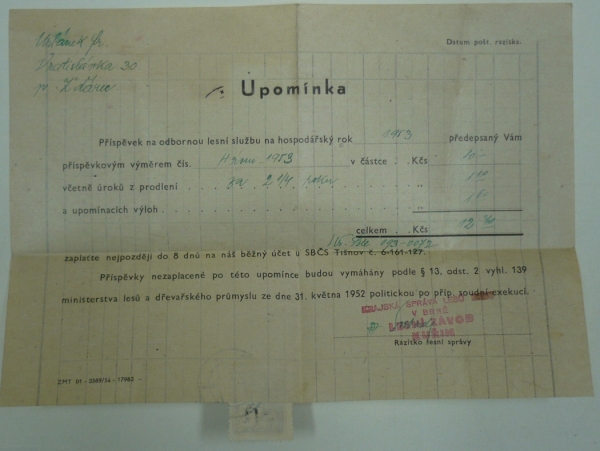 Datum pošt. razítka.
30
Upomínka
Příspěvek na odbornou lesní službu na hospodářský rok 1953 předepsaný Vám
příspěvkovým výměrem čís. 1953 v částce . . Kčs 10.-
včetně úroků z prodlení . . . za 2 1/4 roku . . . „
a upomínacích výloh . . . „
celkem . . Kčs 12
zaplaťte nejpozději do 8 dnů na náš běžný účet u SBČS Tišnov č. 6-161-127.
Příspěvky nezaplacené po této upomínce budou vymáhány podle § 13, odst. 2 vyhl. 139
ministerstva lesů a dřevařského průmyslu ze dne 31. května 1952 politickou po příp. soudní exekucí.
KRAJSKÁ SPRÁVA LESŮ
V BRNĚ
LESNÍ ZÁVOD
KUŘIM
Razítko lesní správy
ZMT 01 - 2089/54 - 17962